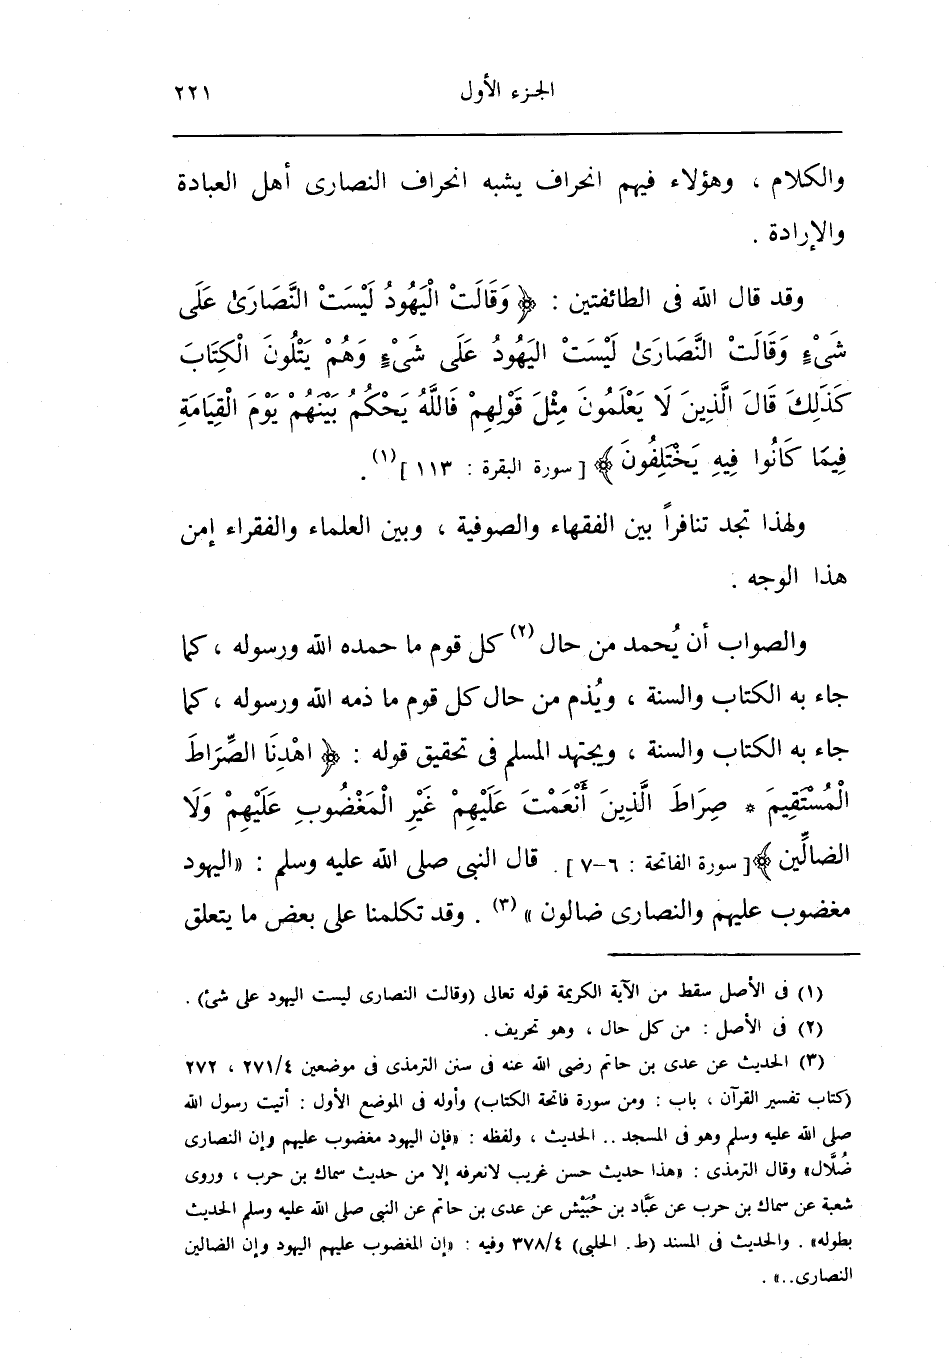 الجزء الأول ٢٢١
والكلام ، وهؤلاء فيهم انحراف يشبه انحراف النصارى أهل العبادة
والإرادة .
وقد قال الله فى الطائفتين : ﴿ وَقَالَتْ الْيَهُودُ لَيْسَتْ النَّصَارَىٰ عَلَى
شَىْءٍ وَقَالَتْ النَّصَارَىٰ لَيْسَتْ اليَهُودُ عَلَى شَىْءٍ وَهُمْ يَتْلُونَ الْكِتَابَ
كَذَلِكَ قَالَ الَّذِينَ لَا يَعْلَمُونَ مِثْلَ قَوْلِهِمْ فَاللَّهُ يَحْكُمُ بَيْنَهُمْ يَوْمَ الْقِيَامَةِ
فِيمَا كَانُوا فِيهِ يَخْتَلِفُونَ ﴾ [ سورة البقرة : ١١٣ ] (١) .
ولهذا تجد تنافراً بين الفقهاء والصوفية ، وبين العلماء والفقراء إمن
هذا الوجه .
والصواب أن يُحمد من حال (٢) كل قوم ما حمده الله ورسوله ، كما
جاء به الكتاب والسنة ، ويُذم من حال كل قوم ما ذمه الله ورسوله ، كما
جاء به الكتاب والسنة ، ويجتهد المسلم فى تحقيق قوله : ﴿ اهْدِنَا الصِّرَاطَ
الْمُسْتَقِيمَ * صِرَاطَ الَّذِينَ أَنْعَمْتَ عَلَيْهِمْ غَيْرِ الْمَغْضُوبِ عَلَيْهِمْ وَلَا
الضالِّين ﴾ [ سورة الفاتحة : ٦-٧ ] . قال النبى صلى الله عليه وسلم : «اليهود
مغضوب عليهم والنصارى ضالون » (٣) . وقد تكلمنا على بعض ما يتعلق
(١) فى الأصل سقط من الآية الكريمة قوله تعالى (وقالت النصارى ليست اليهود على شئ) .
(٢) فى الأصل : من كل حال ، وهو تحريف .
(٣) الحديث عن عدى بن حاتم رضى الله عنه فى سنن الترمذى فى موضعين ٢٧١/٤ ، ٢٧٢
(كتاب تفسير القرآن ، باب : ومن سورة فاتحة الكتاب) وأوله فى الموضع الأول : أتيت رسول الله
صلى الله عليه وسلم وهو فى المسجد .. الحديث ، ولفظه : «فإن اليهود مغضوب عليهم وإن النصارى
ضُلَّال» وقال الترمذى : «هذا حديث حسن غريب لانعرفه إلا من حديث سماك بن حرب ، وروى
شعبة عن سماك بن حرب عن عبَّاد بن حُبَيْش عن عدى بن حاتم عن النبى صلى الله عليه وسلم الحديث
بطوله» . والحديث فى المسند (ط. الحلبى) ٣٧٨/٤ وفيه : «إن المغضوب عليهم اليهود وإن الضالين
النصارى..» .